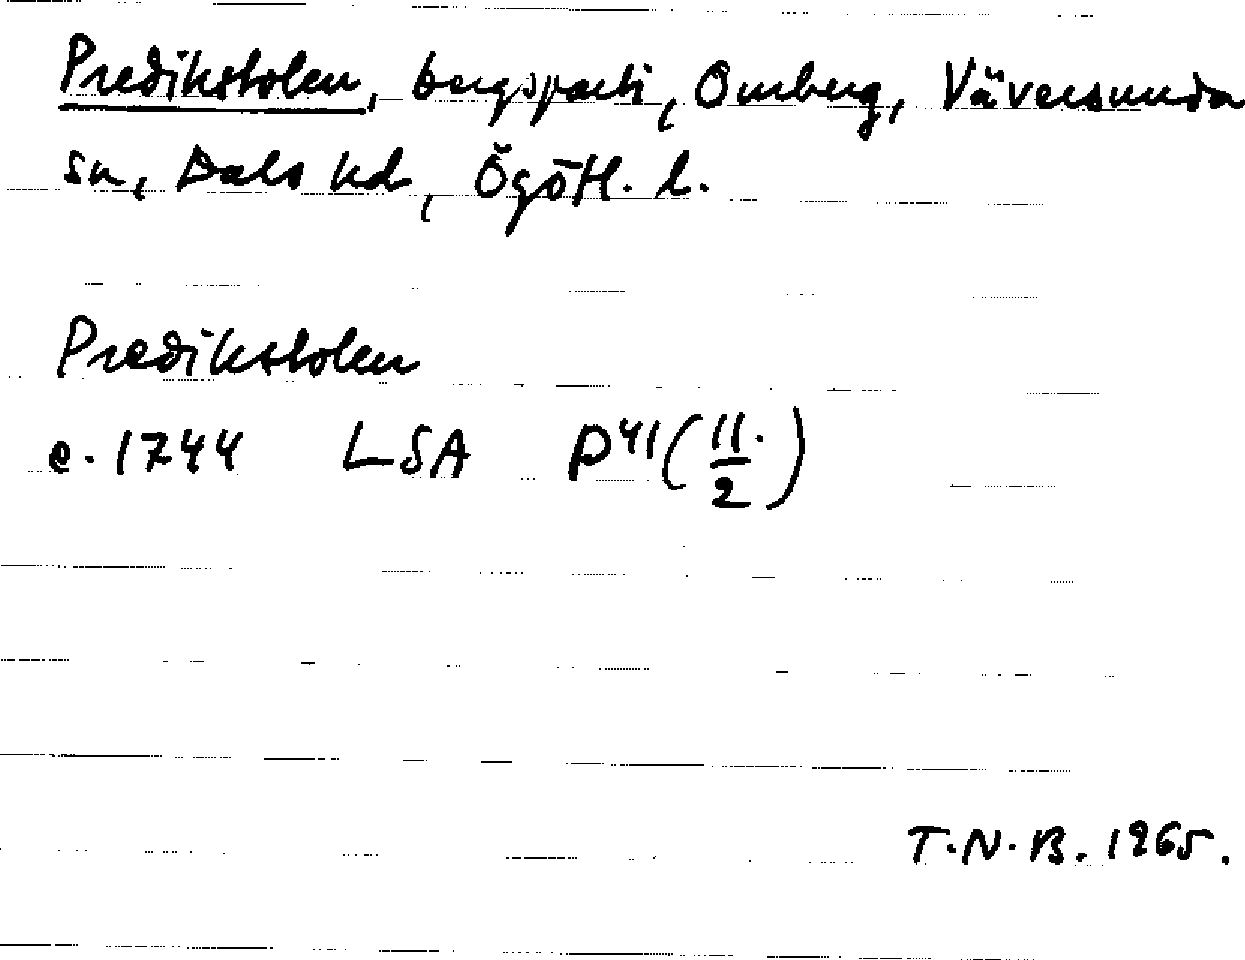 Predikstolen, bergsparti, Omberg, Väversunda
sn, Dals hd, Ögötl. l.
Predikstolen
e. 1744 LSA D41 (11./2)
T.N.B. 1965.